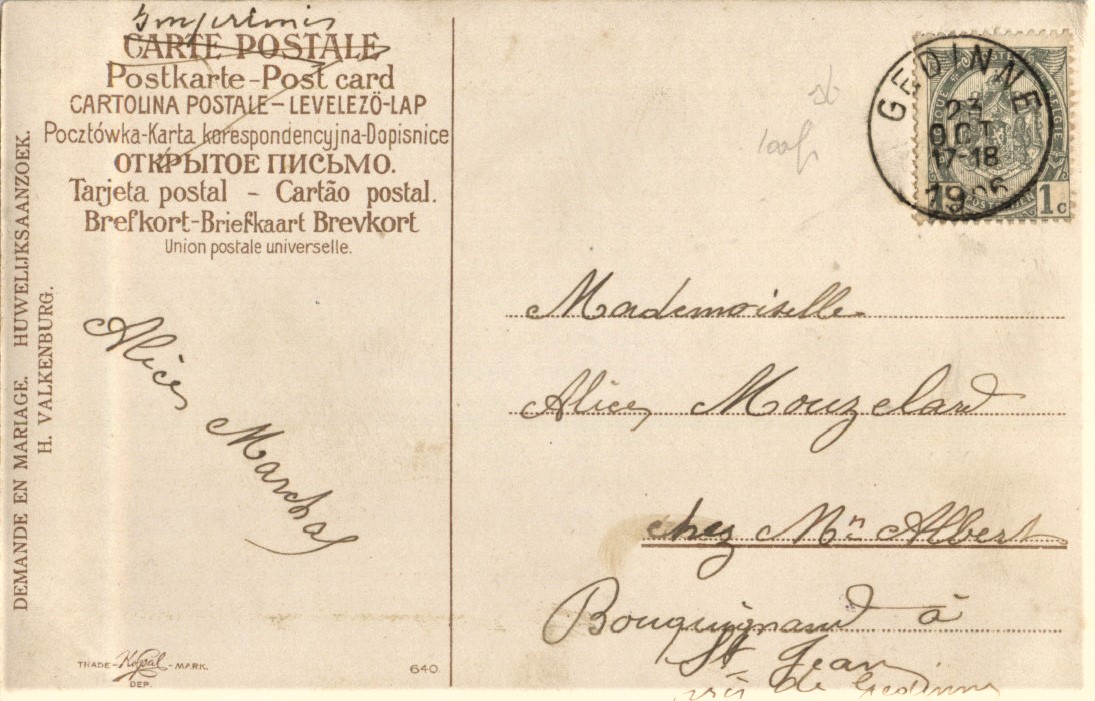 Imprimés
CARTE POSTALE
Postkarte-Post card
CARTOLINA POSTALE-LEVELEZÖ-LAP
Pocztówka-Karta korespondencyjna-Dopisnice
ОТКРЫТОЕ ПИСЬМО.
Tarjeta postal - Cartão postal.
Brefkort-Briefkaart Brevkort
Union postale universelle.
DEMANDE EN MARIAGE. HUWELIJKSAANZOEK.
H. VALKENBURG.
Alice
Marchal
TRADE-Kopal-MARK.
DEP.
640.
GEDINNE
23
OCT
17-18
1906
BELGIE
1c
Mademoiselle
Alice Mouzelard
chez Mn Albert
Bouquignand à
St Jean
près de Gedinne